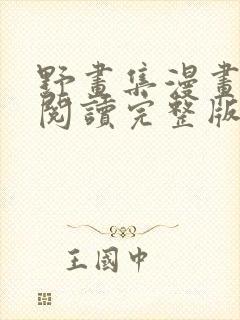 野畫集漫畫
閱讀完整版
王國中